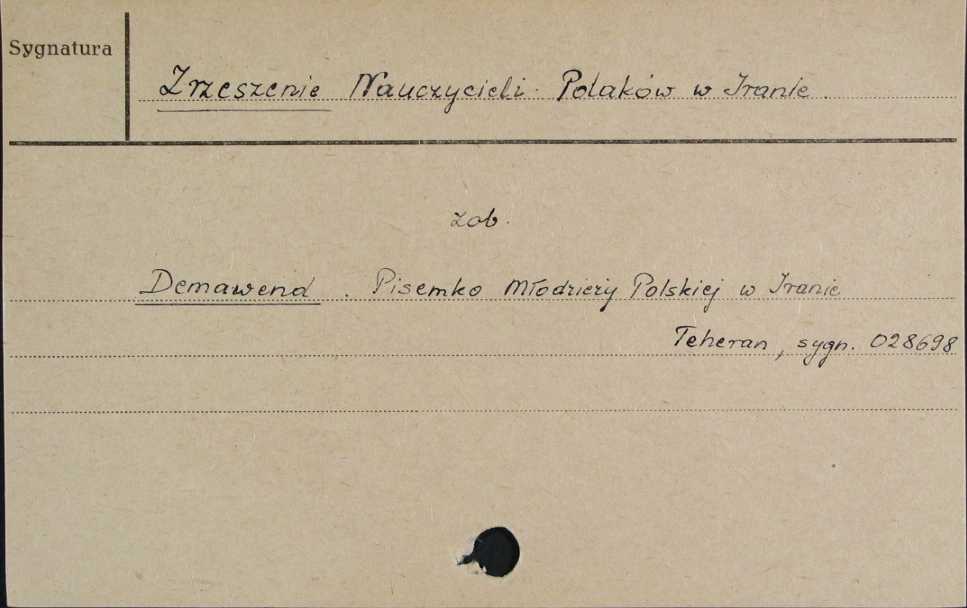 Sygnatura
Zrzeszenie Nauczycieli Polaków w Iranie.
zob.
Demawend. Pisemko Młodzieży Polskiej w Iranie
Teheran, sygn. 028698